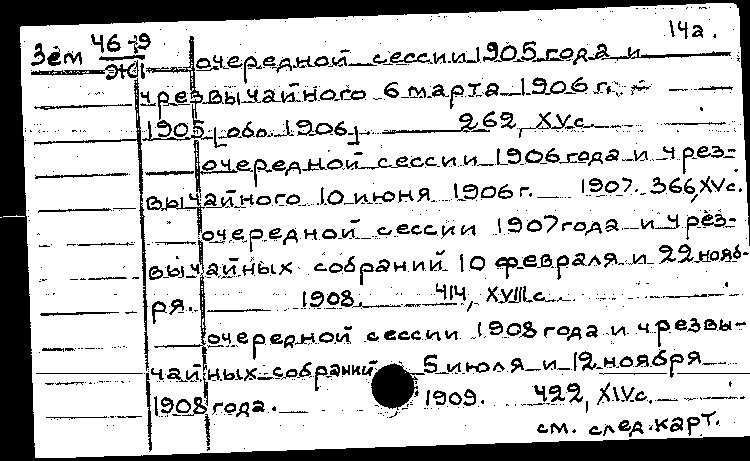 14а.
Зем 46-9
ЭЖ1
очередной сессии 1905 года и
чрезвычайного 6 марта 1906 г.
1905 [обл. 1906]. 262, XV с.
очередной сессии 1906 года и чрез-
вычайного 10 июня 1906 г. 1907. 366, XV с.
очередной сессии 1907 года и чрез-
вычайных собраний 10 февраля и 22 нояб-
ря. 1908. 414, XVIII с.
очередной сессии 1908 года и чрезвы-
чайных собраний 5 июля и 12 ноября
1908 года. 1909. 422, XIV с.
см. след. карт.